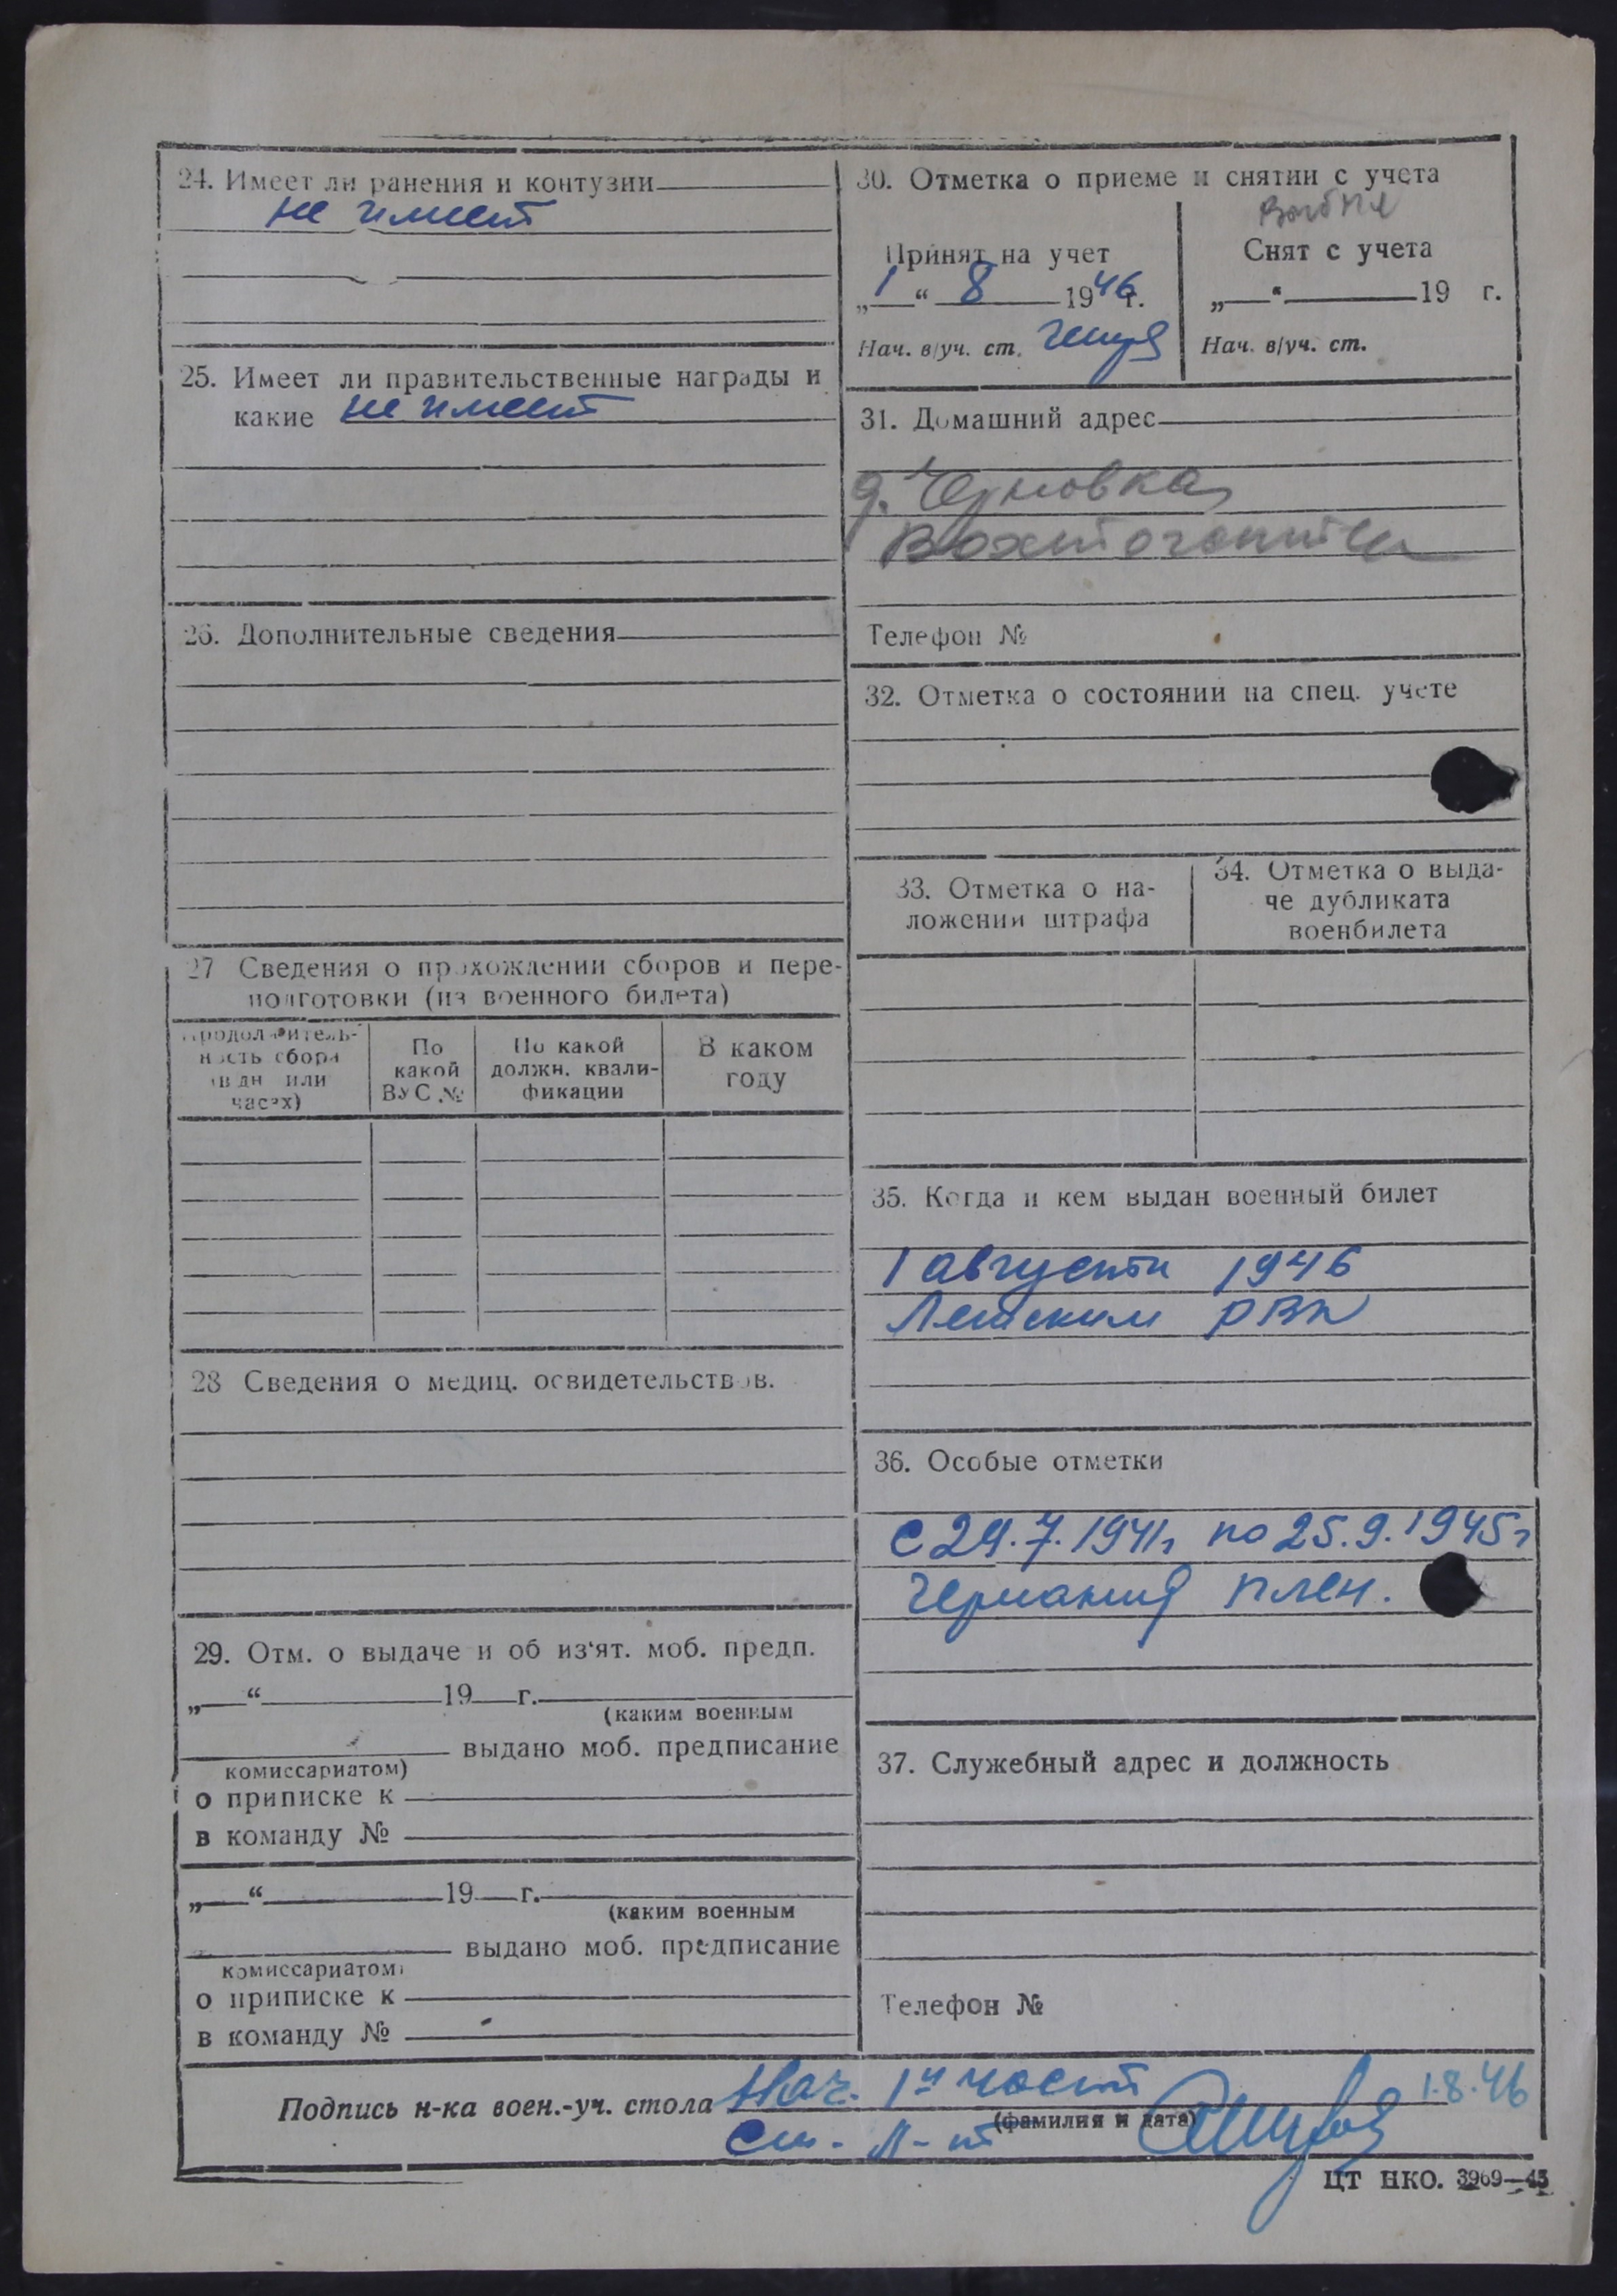 24. Имеет ли ранения и контузии
не имеет
25. Имеет ли правительственные награды и
какие не имеет
26. Дополнительные сведения
27 Сведения о прохождении сборов и пере-
подготовки (из военного билета)
Продолжитель-
ность сбора
(в дн или
часах)
По
какой
ВУС №
По какой
должн. квали-
фикации
В каком
году
28 Сведения о медиц. освидетельствов.
29. Отм. о выдаче и об из'ят. моб. предп.
„ “ 19 г.
(каким военным
выдано моб. предписание
комиссариатом)
о приписке к
в команду №
„ “ 19 г.
(каким военным
выдано моб. предписание
комиссариатом)
о приписке к
в команду №
30. Отметка о приеме и снятии с учета
Принят на учет
„1“ 8 1946г.
Нач. в/уч. ст.
Снят с учета
„ “ 19 г.
Нач. в/уч. ст.
31. Домашний адрес
д. Черновка
Телефон №
32. Отметка о состоянии на спец. учете
33. Отметка о на-
ложении штрафа
34. Отметка о выда-
че дубликата
военбилета
35. Когда и кем выдан военный билет
1 августа 1946
Летским РВК
36. Особые отметки
С 24.7.1941г по 25.9.1945г
Германия плен.
37. Служебный адрес и должность
Телефон №
Подпись н-ка воен.-уч. стола Нач. 1й части 1.8.46
(фамилия и дата)
Ст. Л-т
ЦТ НКО. 3969—45